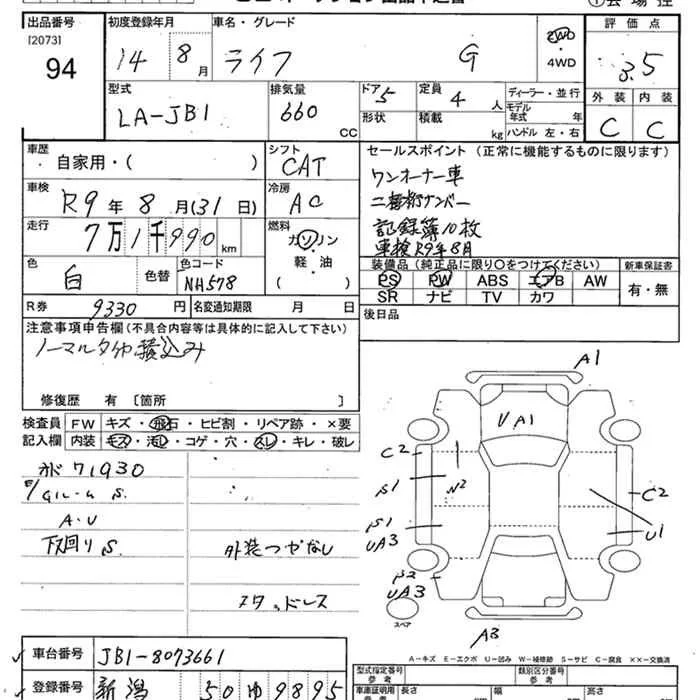 出品番号 初度登録年月 車名・グレード 評価点
[2073]
94
14年 8月 ライフ G 2WD・4WD 3.5
型式 排気量 ドア 定員 ディーラー・並行 外装 内装
LA-JB1 660 CC 5 4人 モデル年式 年
形状 積載 kg ハンドル 左・右 C C
車歴 シフト セールスポイント (正常に機能するものに限ります)
自家用・( ) CAT ワンオーナー車
車検 冷房 二桁ナンバー
R9年8月(31日) AC 記録簿10枚
走行 燃料 車検R9年8月
7万1千990km ガソリン・軽・油 ( )
装備品 (純正品に限り○をつけてください) 新車保証書
PS PW ABS エアB AW 有・無
SR ナビ TV カワ
色 白 色替 色コード NH578
後日品
R券 9330円 名変通知期限 月 日
注意事項申告欄(不具合内容等は具体的に記入して下さい)
ノーマルタイヤ積込み
修復歴 有 〔箇所 〕
検査員 FW キズ・飛石・ヒビ割・リペア跡・×要
記入欄 内装 キズ・汚れ・コゲ・穴・スレ・キレ・破レ
71930
S.
A・U
下回りS. 外装つやなし
スタッドレス
A1
UA1
C2
S1
C2
S1
UA3
U1
UA3
スペア
A3
A-キズ E-エクボ U-凹み W-補修跡 S-サビ C-腐食 ××-交換済
車台番号 JB1-8073661 型式指定番号 参考 類別区分番号 参考
登録番号 新潟 50 ゆ 9895 車庫証明用 参考 長さ 幅 高さ